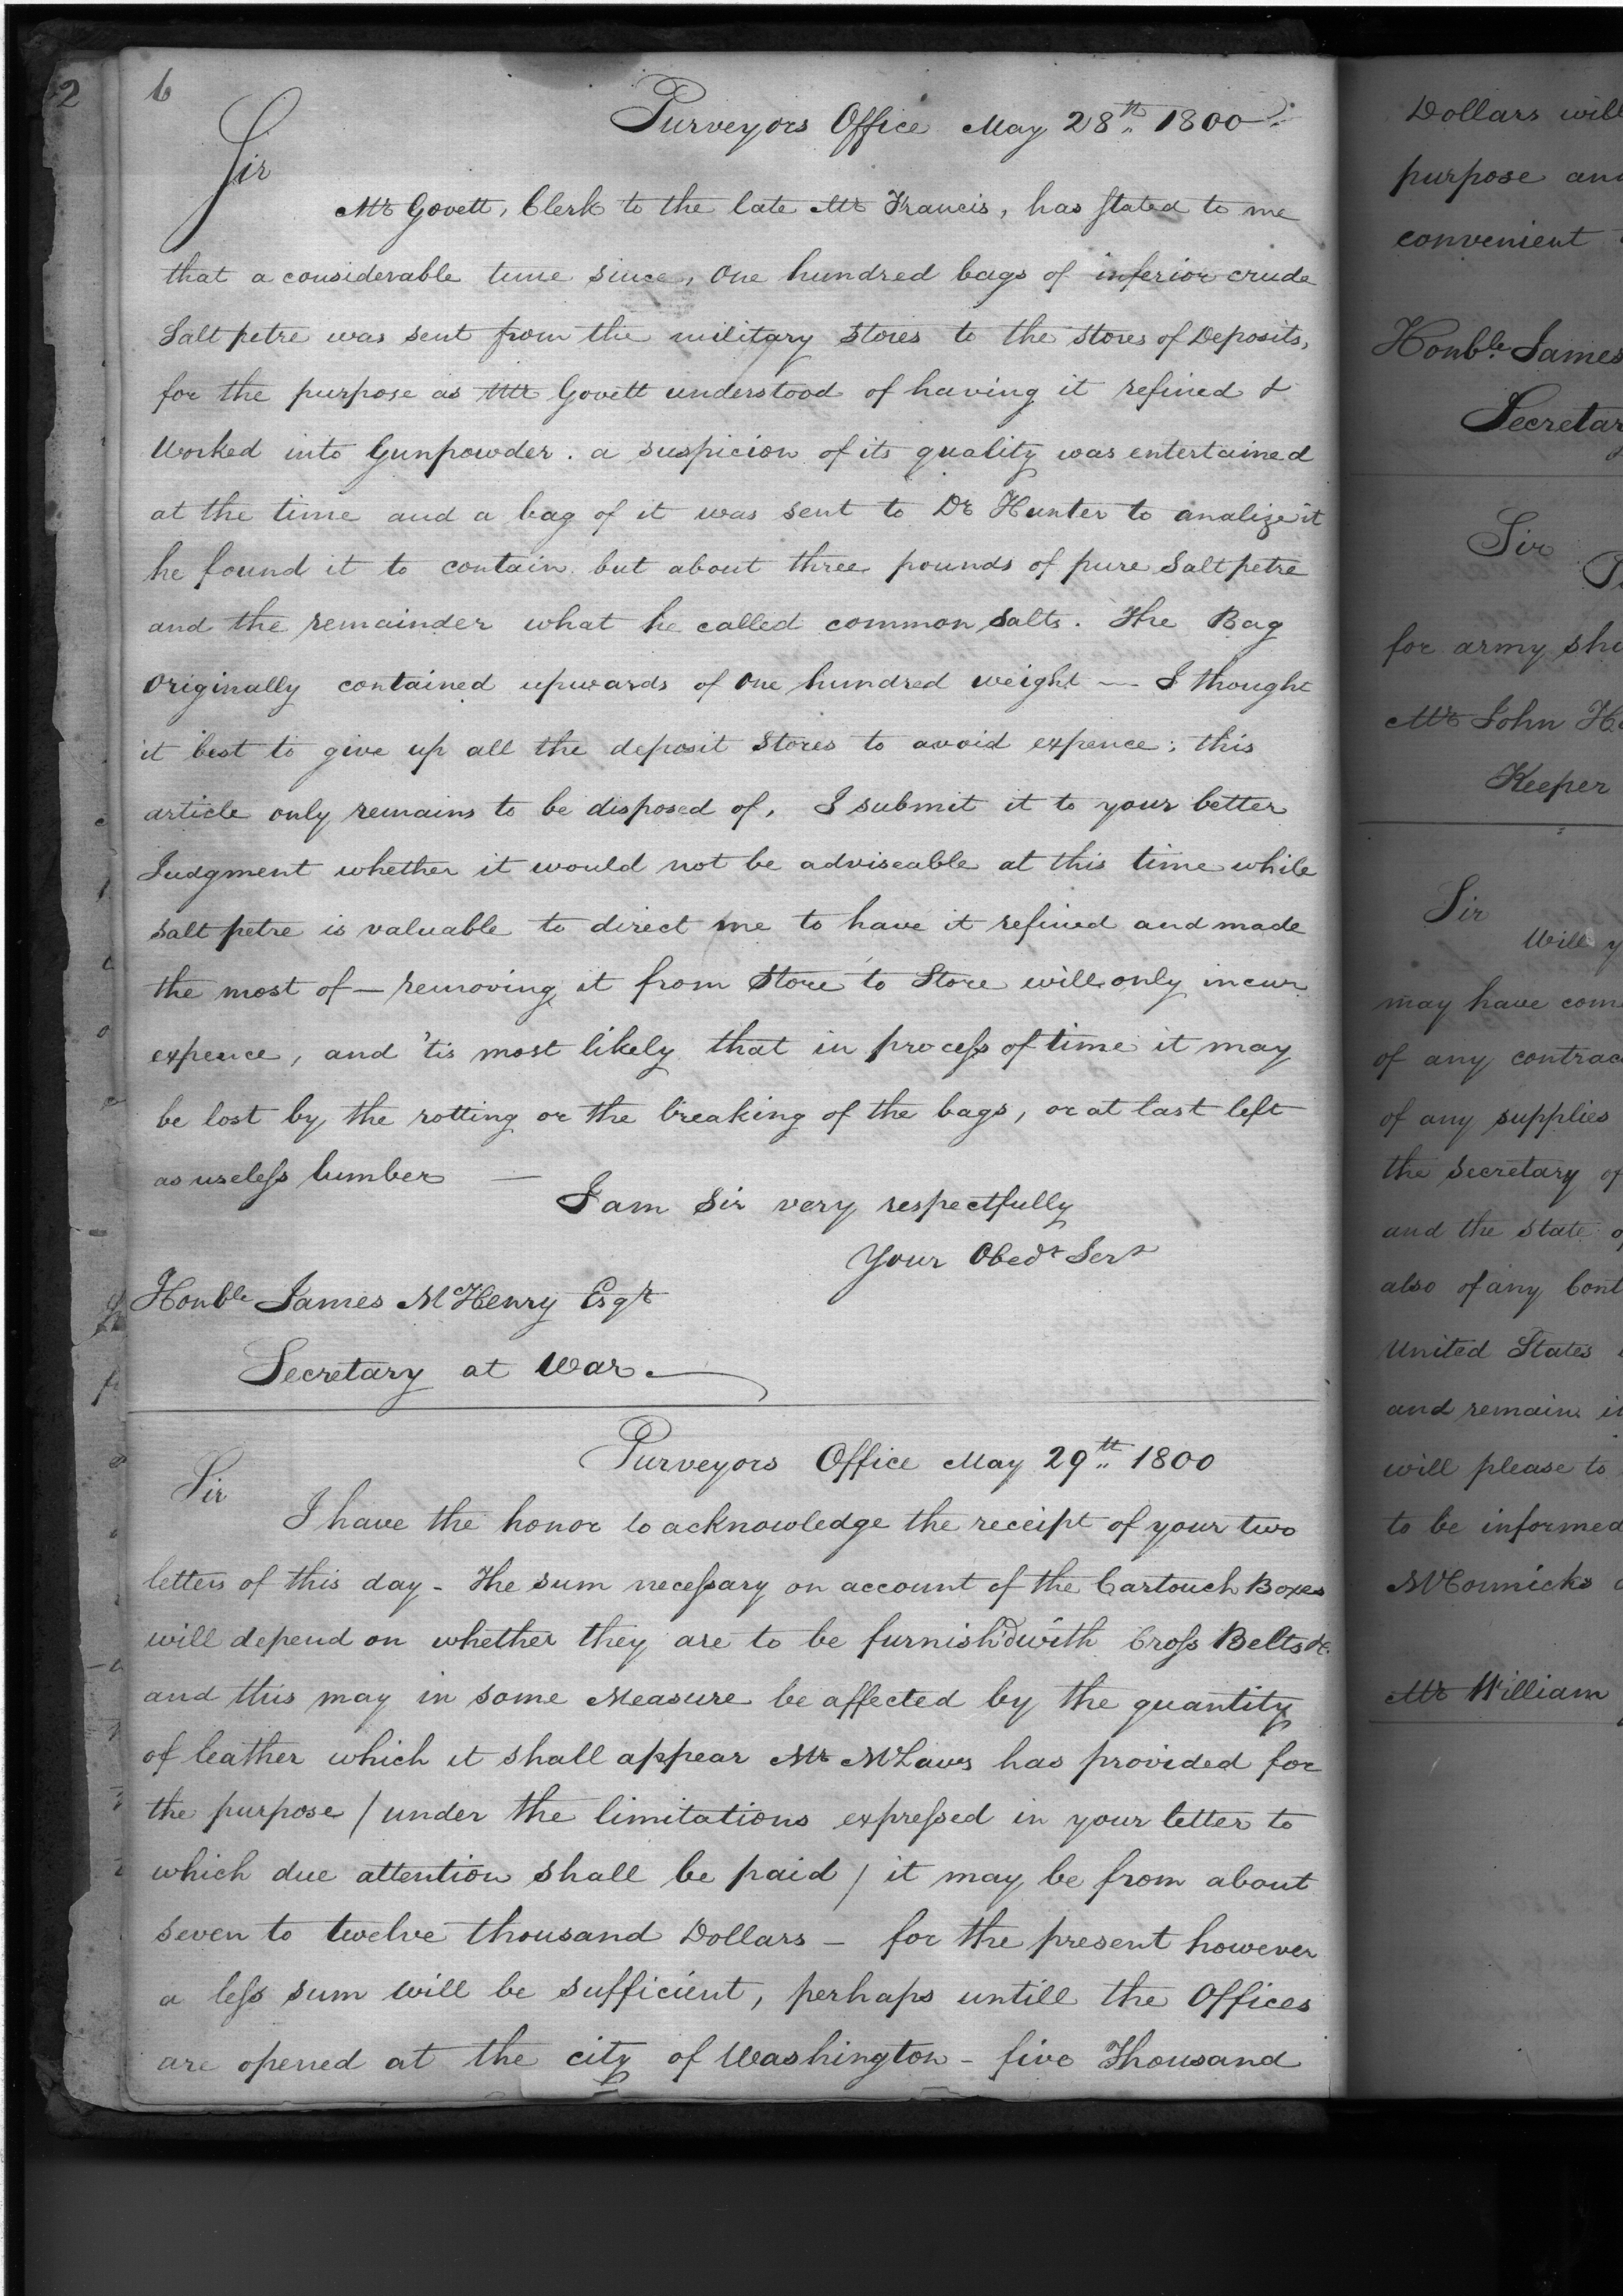 2
6
Purveyors Office May 28th 1800
Sir
Mr Govett, Clerk to the late Mr Francis, has stated to me
that a considerable time since, One hundred bags of inferior crude
Salt petre was sent from the military Stores to the Stores of Deposits,
for the purpose as Mr Govett understood of having it refined &
Worked into Gunpowder. a suspicion of its quality was entertained
at the time and a bag of it was sent to Dr Hunter to analize it
he found it to contain but about three pounds of pure Salt petre
and the remainder what he called common salts. The Bag
Originally contained upwards of One hundred weight — I thought
it best to give up all the deposit Stores to avoid expence; this
article only remains to be disposed of, I submit it to your better
Judgment whether it would not be adviseable at this time while
Salt petre is valuable to direct me to have it refined and made
the most of — removing it from Store to Store will only incur
expence, and 'tis most likely that in process of time it may
be lost by the rotting or the breaking of the bags, or at last left
as useless lumber —
I am Sir very respectfully
Your Obedt Sert
Honble James McHenry Esqr
Secretary at War
Purveyors Office May 29th 1800
Sir
I have the honor to acknowledge the receipt of your two
letters of this day - The sum necessary on account of the Cartouch Boxes
will depend on whether they are to be furnish'd with Cross Belts &c.
and this may in some Measure be affected by the quantity
of leather which it shall appear Mr McLaws has provided for
the purpose / under the limitations expressed in your letter to
which due attention shall be paid / it may be from about
seven to twelve thousand Dollars — for the present however
a less sum will be sufficient, perhaps untill the Offices
are opened at the city of Washington - five Thousand
Dollars will
purpose and
convenient
Honble James
Secretary
Sir
for army
Mr John
Keeper
Sir
Will
may have
of any
of any supplies
the Secretary
and the state
also of any
United States
and remain
will please to
to be informed
Mr William